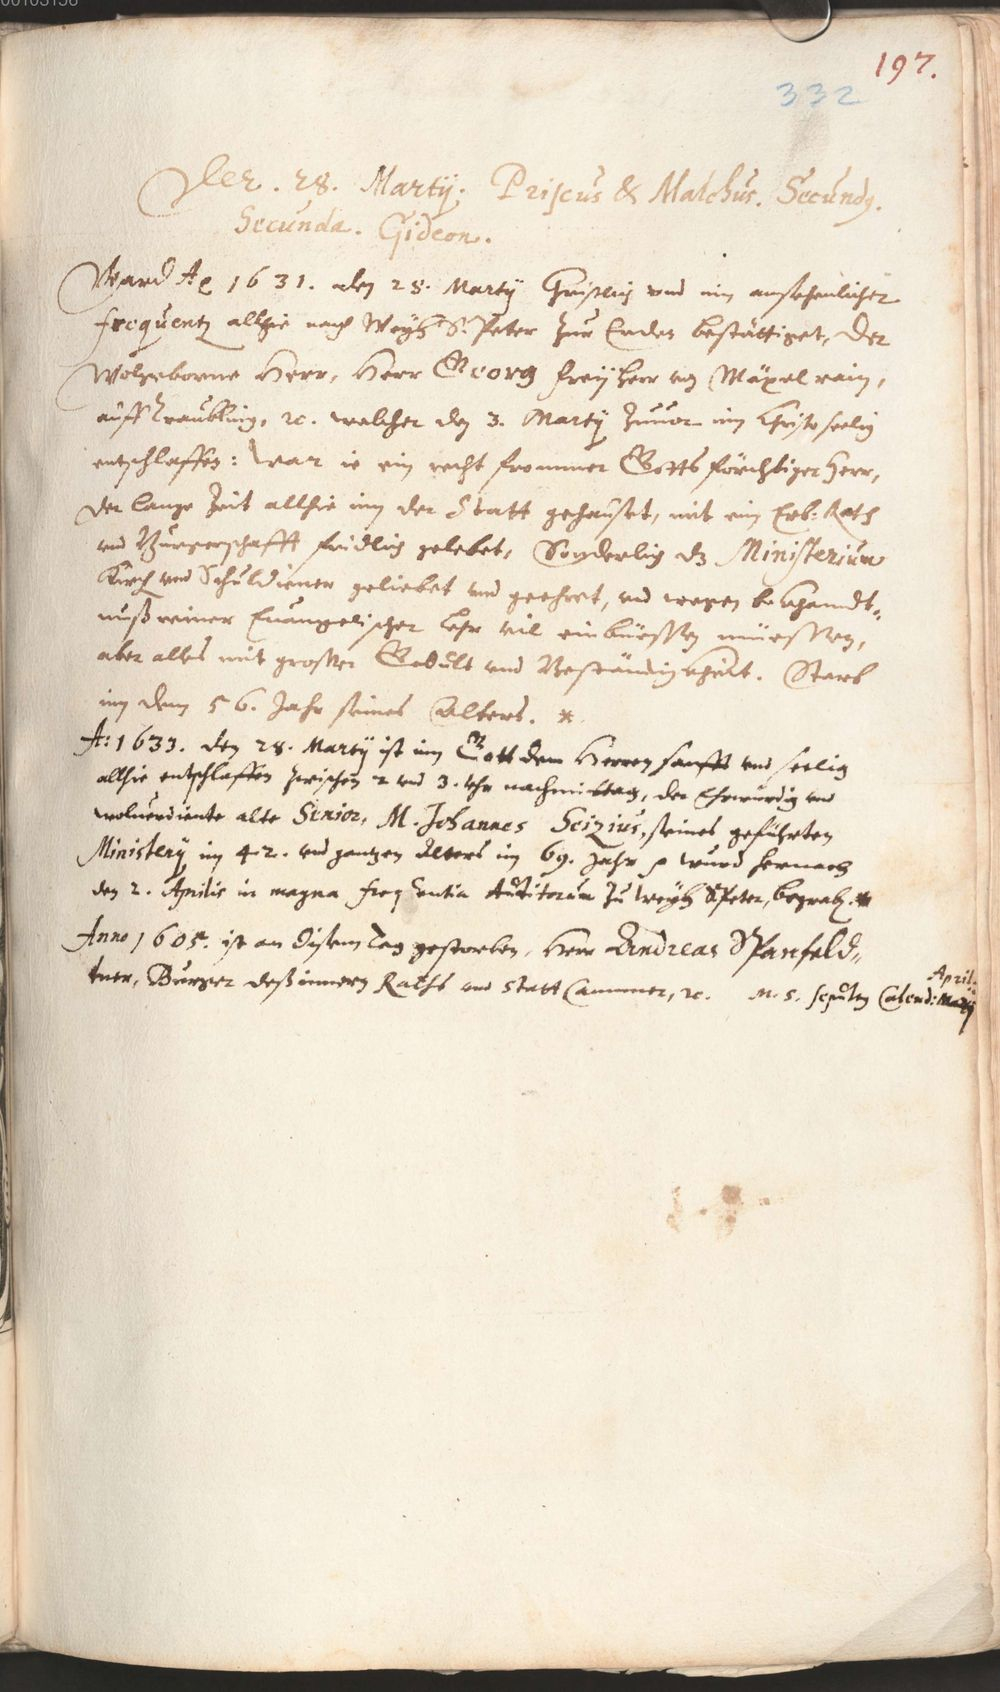 197.
332
Der. 28. Martÿ. Priscus & Malchus. Secundq.
Secunda. Gideon.
Ward Aõ 1631. den 28. Martÿ Christlich vnd inn ansehenlicher
frequentz allhie nach Weyh S. Peter zur Erden bestättiget, Der
Wolgeborne Herr, Herr Georg Freÿherr von Mäxelrain,
auff Traubling, ꝛc. welcher den 3. Martÿ zuuor inn Christo seelig
entschlaffen: War ie ein recht frommer Gottsförchtiger Herr,
der lange Zeit allhie inn der Statt gehauset, mit eim Erb: Rath
vnd Burgerschafft fridlich gelebet, Sonderlich dz Ministerium
Kirch vnd Schuldiener geliebet vnd geehret, vnd wegen bekhandt-
nuß reiner Euangelischer Lehr vil einbüessen müessen,
aber alles mit grosser Gedult vnd Beständigkheit. Starb
inn dem 56. Jahr seines Alters. *
A: 1633. den 28. Martÿ ist inn Gott dem Herren sanfft vnd seelig
allhie entschlaffen zwischen 2 vnd 3. Vhr nachmittag, der Ehrwürdig vnd
woluerdiente alte Senior, M. Johannes Seizius, seines geführten
Ministerÿ im 42. vnd gantzen Alters im 69. Jahr, wurd hernach
den 2. Aprilis in magna frequentia Auditorum zu Weyh S Peter, begrab. *
Anno 1605. ist an disem Tag gestorben, Herr Andreas Spanfeld-
tner, Burger deß innern Raths vnd Statt Cammer, ꝛc. M. S. sepult9 Calend: Martÿ
April.